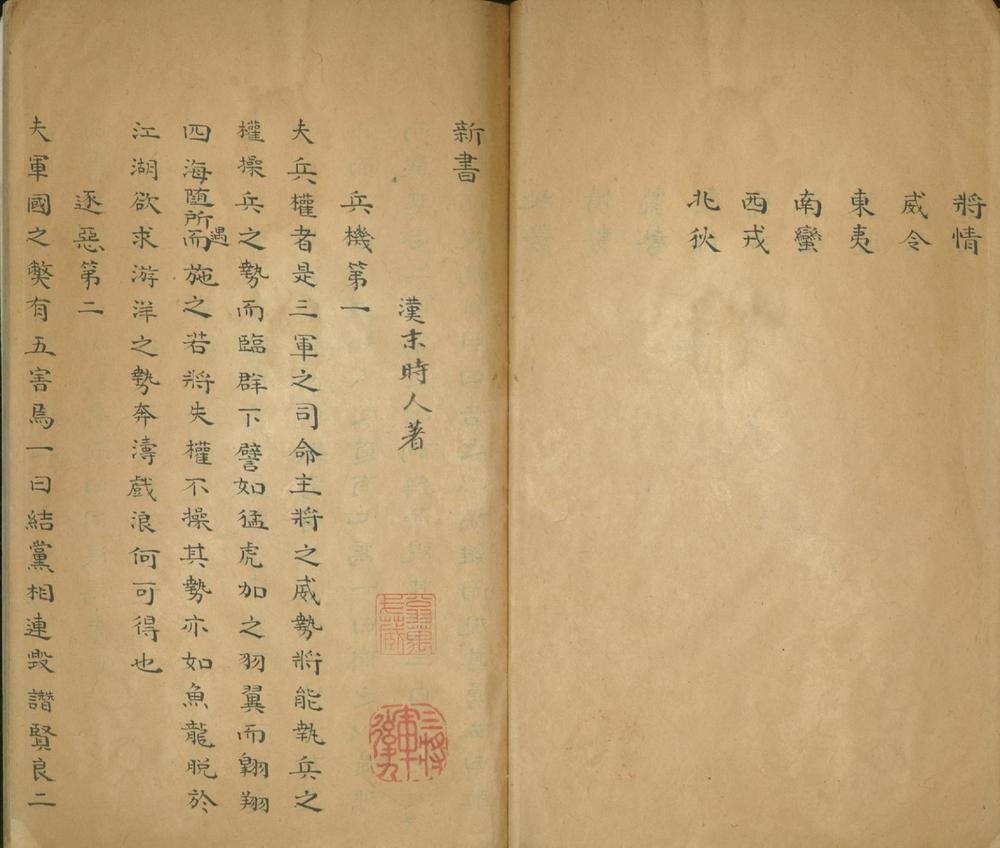 將情
威令
東夷
南蠻
西戎
北狄
新書
漢末時人著
兵機第一
夫兵權者是三軍之司命主將之威勢將能執兵之
權操兵之勢而臨群下譬如猛虎加之羽翼而翱翔
四海随所遇而施之若將失權不操其勢亦如魚龍脱於
江湖欲求游洋之勢奔濤戲浪何可得也
逐惡第二
夫軍國之獘有五害焉一曰結黨相連毁譖賢良二